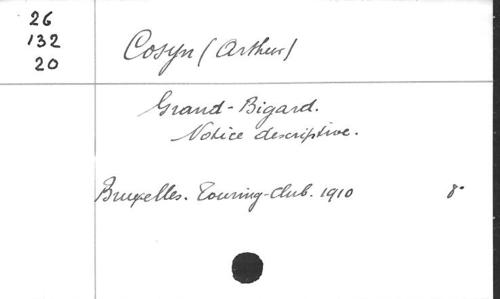 26
132
20
Cosyn (Arthur)
Grand-Bigard.
Notice descriptive.
Bruxelles. Touring-Club. 1910 8°